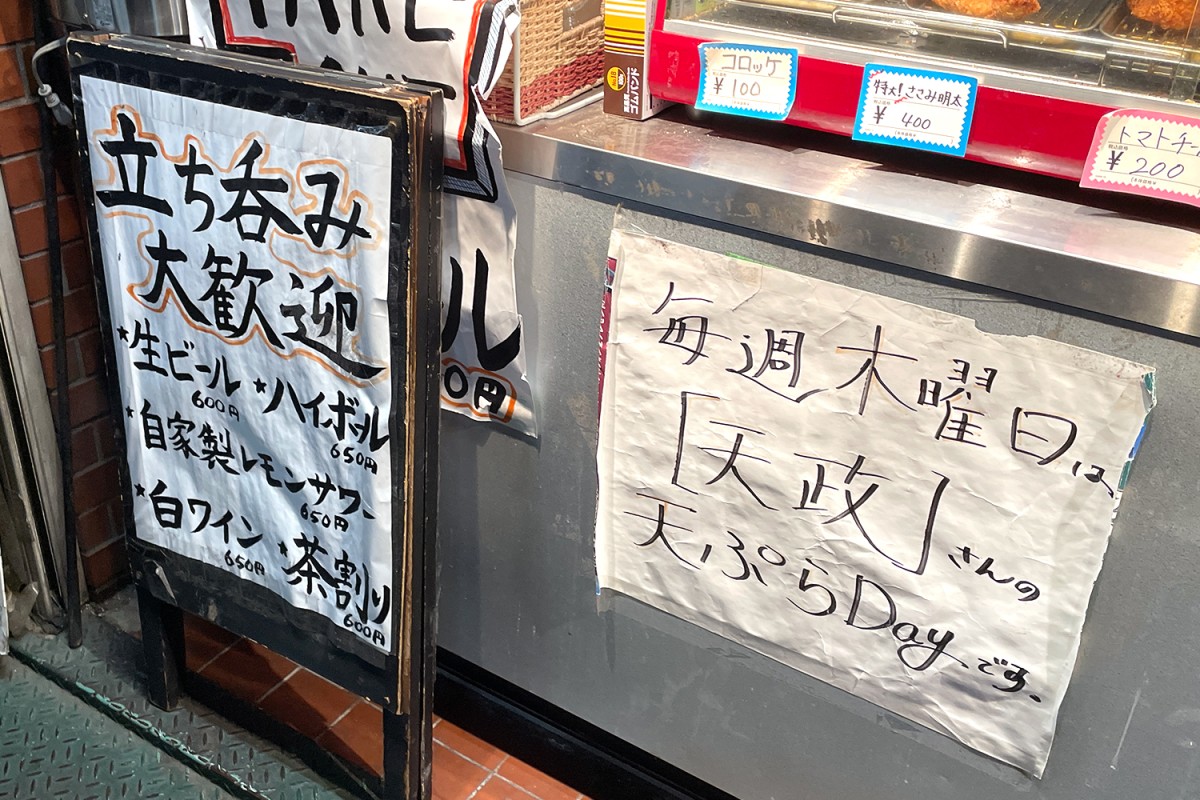 立ち呑み
大歓迎
★生ビール
600円
★ハイボール
650円
★自家製レモンサワー
650円
★白ワイン
650円
★茶割り
600円
ル
0円
ゴムバンド
コロッケ
¥100
特大!ささみ明太
¥400
トマトチー
¥200
毎週木曜日は
「天政」さんの
天ぷらDayです。